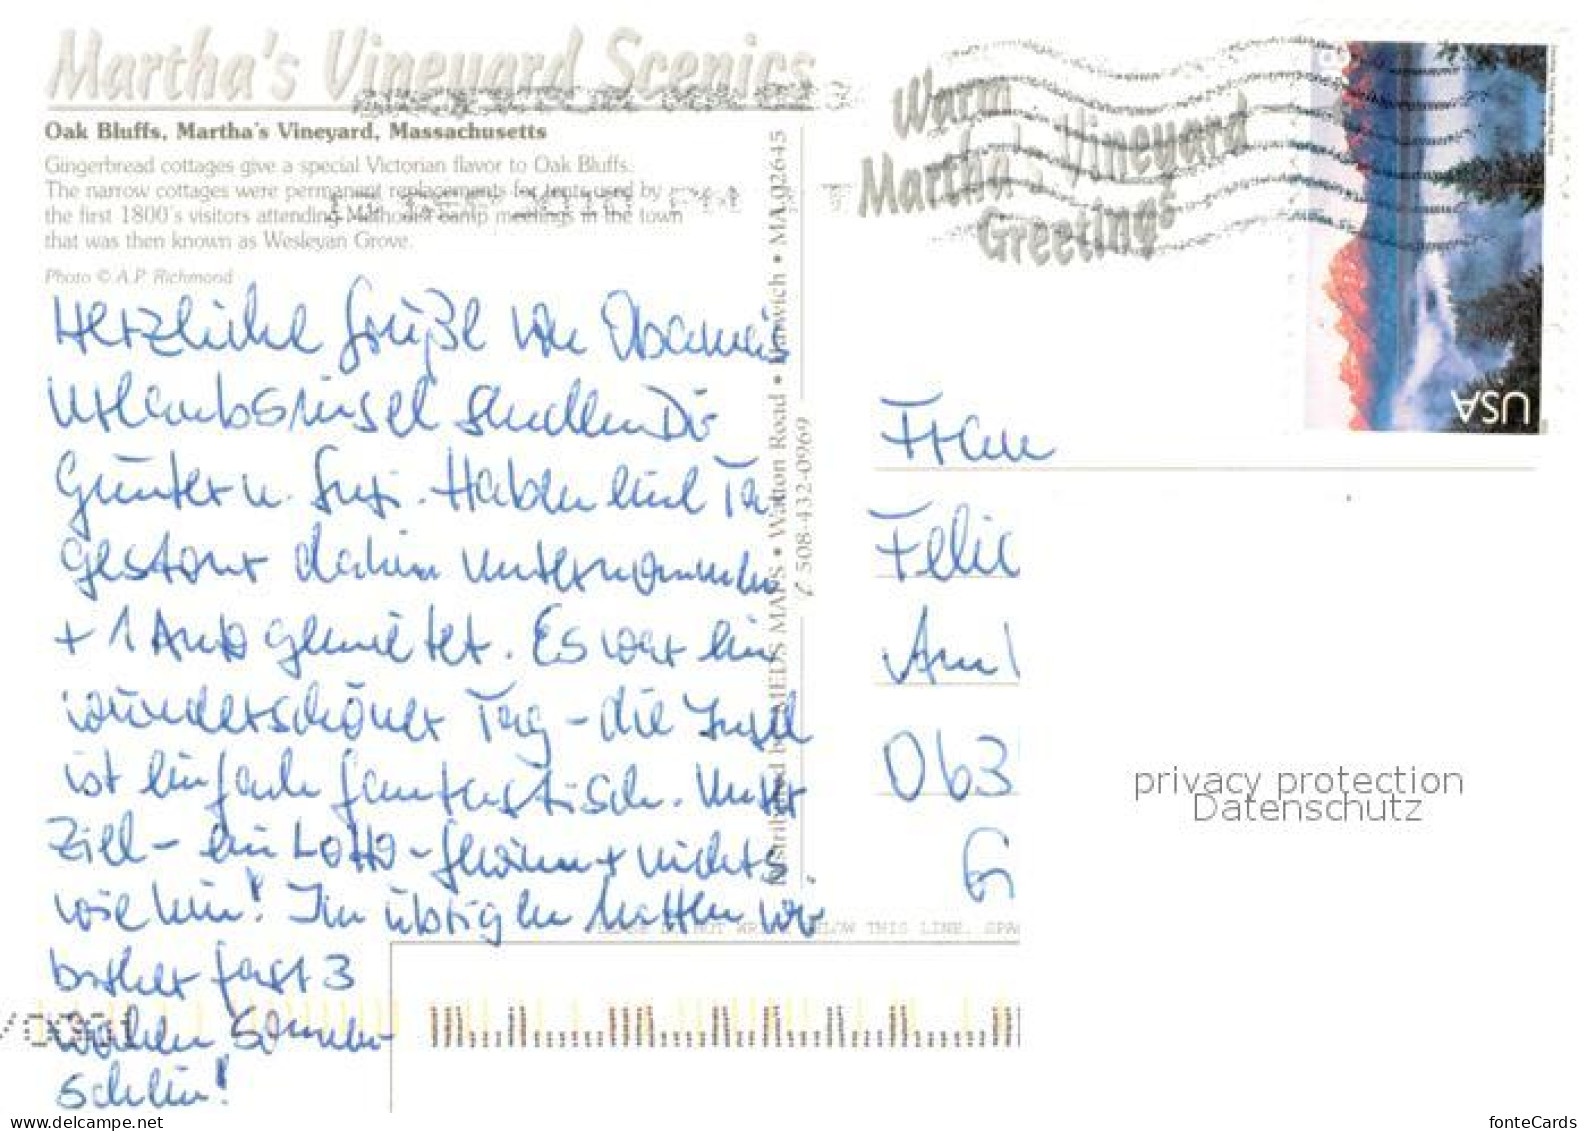 Martha's Vineyard Scenics
Oak Bluffs, Martha's Vineyard, Massachusetts
Gingerbread cottages give a special Victorian flavor to Oak Bluffs.
The narrow cottages were permanent replacements for tents used by
the first 1800's visitors attending Methodist camp meetings in the town
that was then known as Wesleyan Grove.
Photo © A.P. Richmond
Herzliche Grüße von Obamais
Urlaubsinsel senden Dir
Günter u. Susi. Haben eine Ta
gestour dahin unternommen
+ 1 Auto gemietet. Es war ein
wunderschöner Tag - die Insel
ist einfach fantastisch. Unser
Ziel - ein Lotto-Gewinn + nichts
wie hin! Im übrigen hatten wir
bisher fast 3
Wochen Sonnen-
schein!
Distributed by MEDS MAPS • Walton Road • Harwich • MA 02645
508-432-0969
Warm
Martha's Vineyard
Greetings
USA
Frau
Felic
Am
063
G
PLEASE DO NOT WRITE BELOW THIS LINE. SPA
privacy protection
Datenschutz
www.delcampe.net
fonteCards